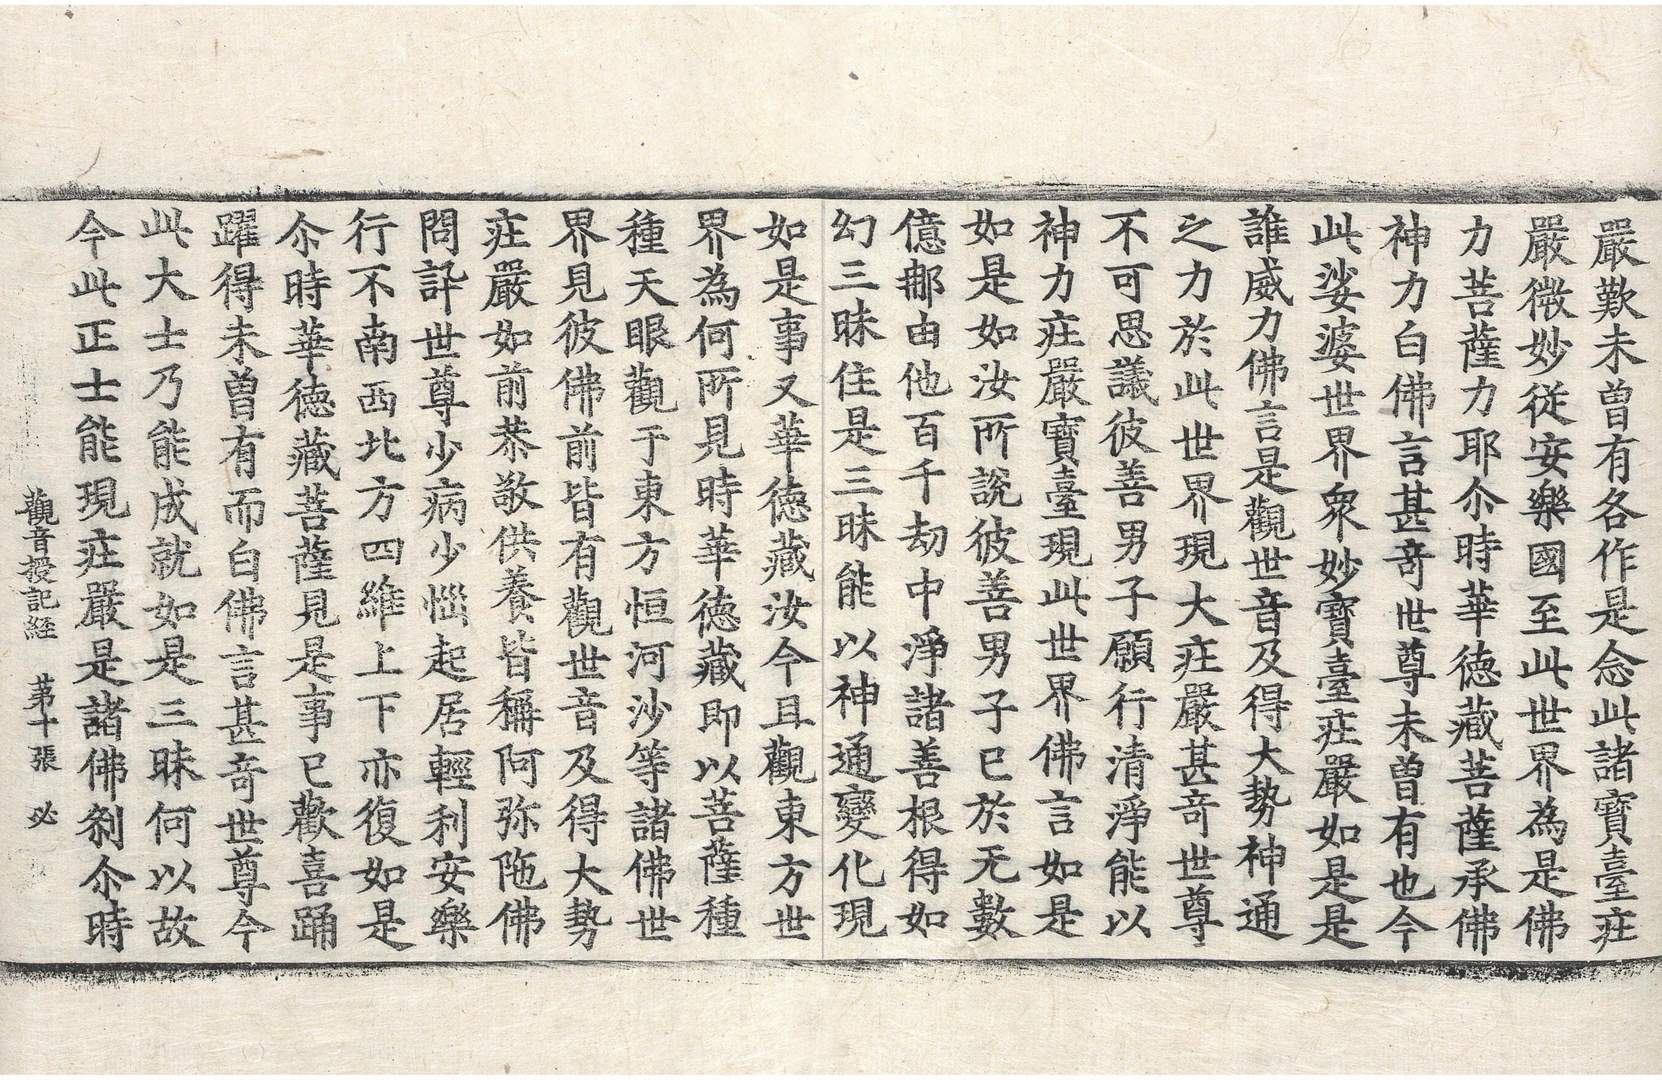 嚴歎未曾有各作是念此諸寶臺庄
嚴微妙從安樂國至此世界為是佛
力菩薩力耶尒時華徳藏菩薩承佛
神力白佛言甚竒世尊未曾有也今
此娑婆世界衆妙寶臺庄嚴如是是
誰威力佛言是觀世音及得大勢神通
之力於此世界現大庄嚴甚竒世尊
不可思議彼善男子願行清淨能以
神力庄嚴寶臺現此世界佛言如是
如是如汝所說彼善男子已於无數
億郍由他百千劫中淨諸善根得如
幻三昧住是三昧能以神通變化現
如是事又華徳藏汝今且觀東方世
界為何所見時華徳藏即以菩薩種
種天眼觀于東方恒河沙等諸佛世
界見彼佛前皆有觀世音及得大勢
庄嚴如前恭敬供養皆稱阿弥陁佛
問訊世尊少病少惱起居輕利安樂
行不南西北方四維上下亦復如是
尒時華徳藏菩薩見是事已歡喜踊
躍得未曾有而白佛言甚竒世尊今
此大士乃能成就如是三昧何以故
今此正士能現庄嚴是諸佛刹尒時
觀音授記経　苐十張　必